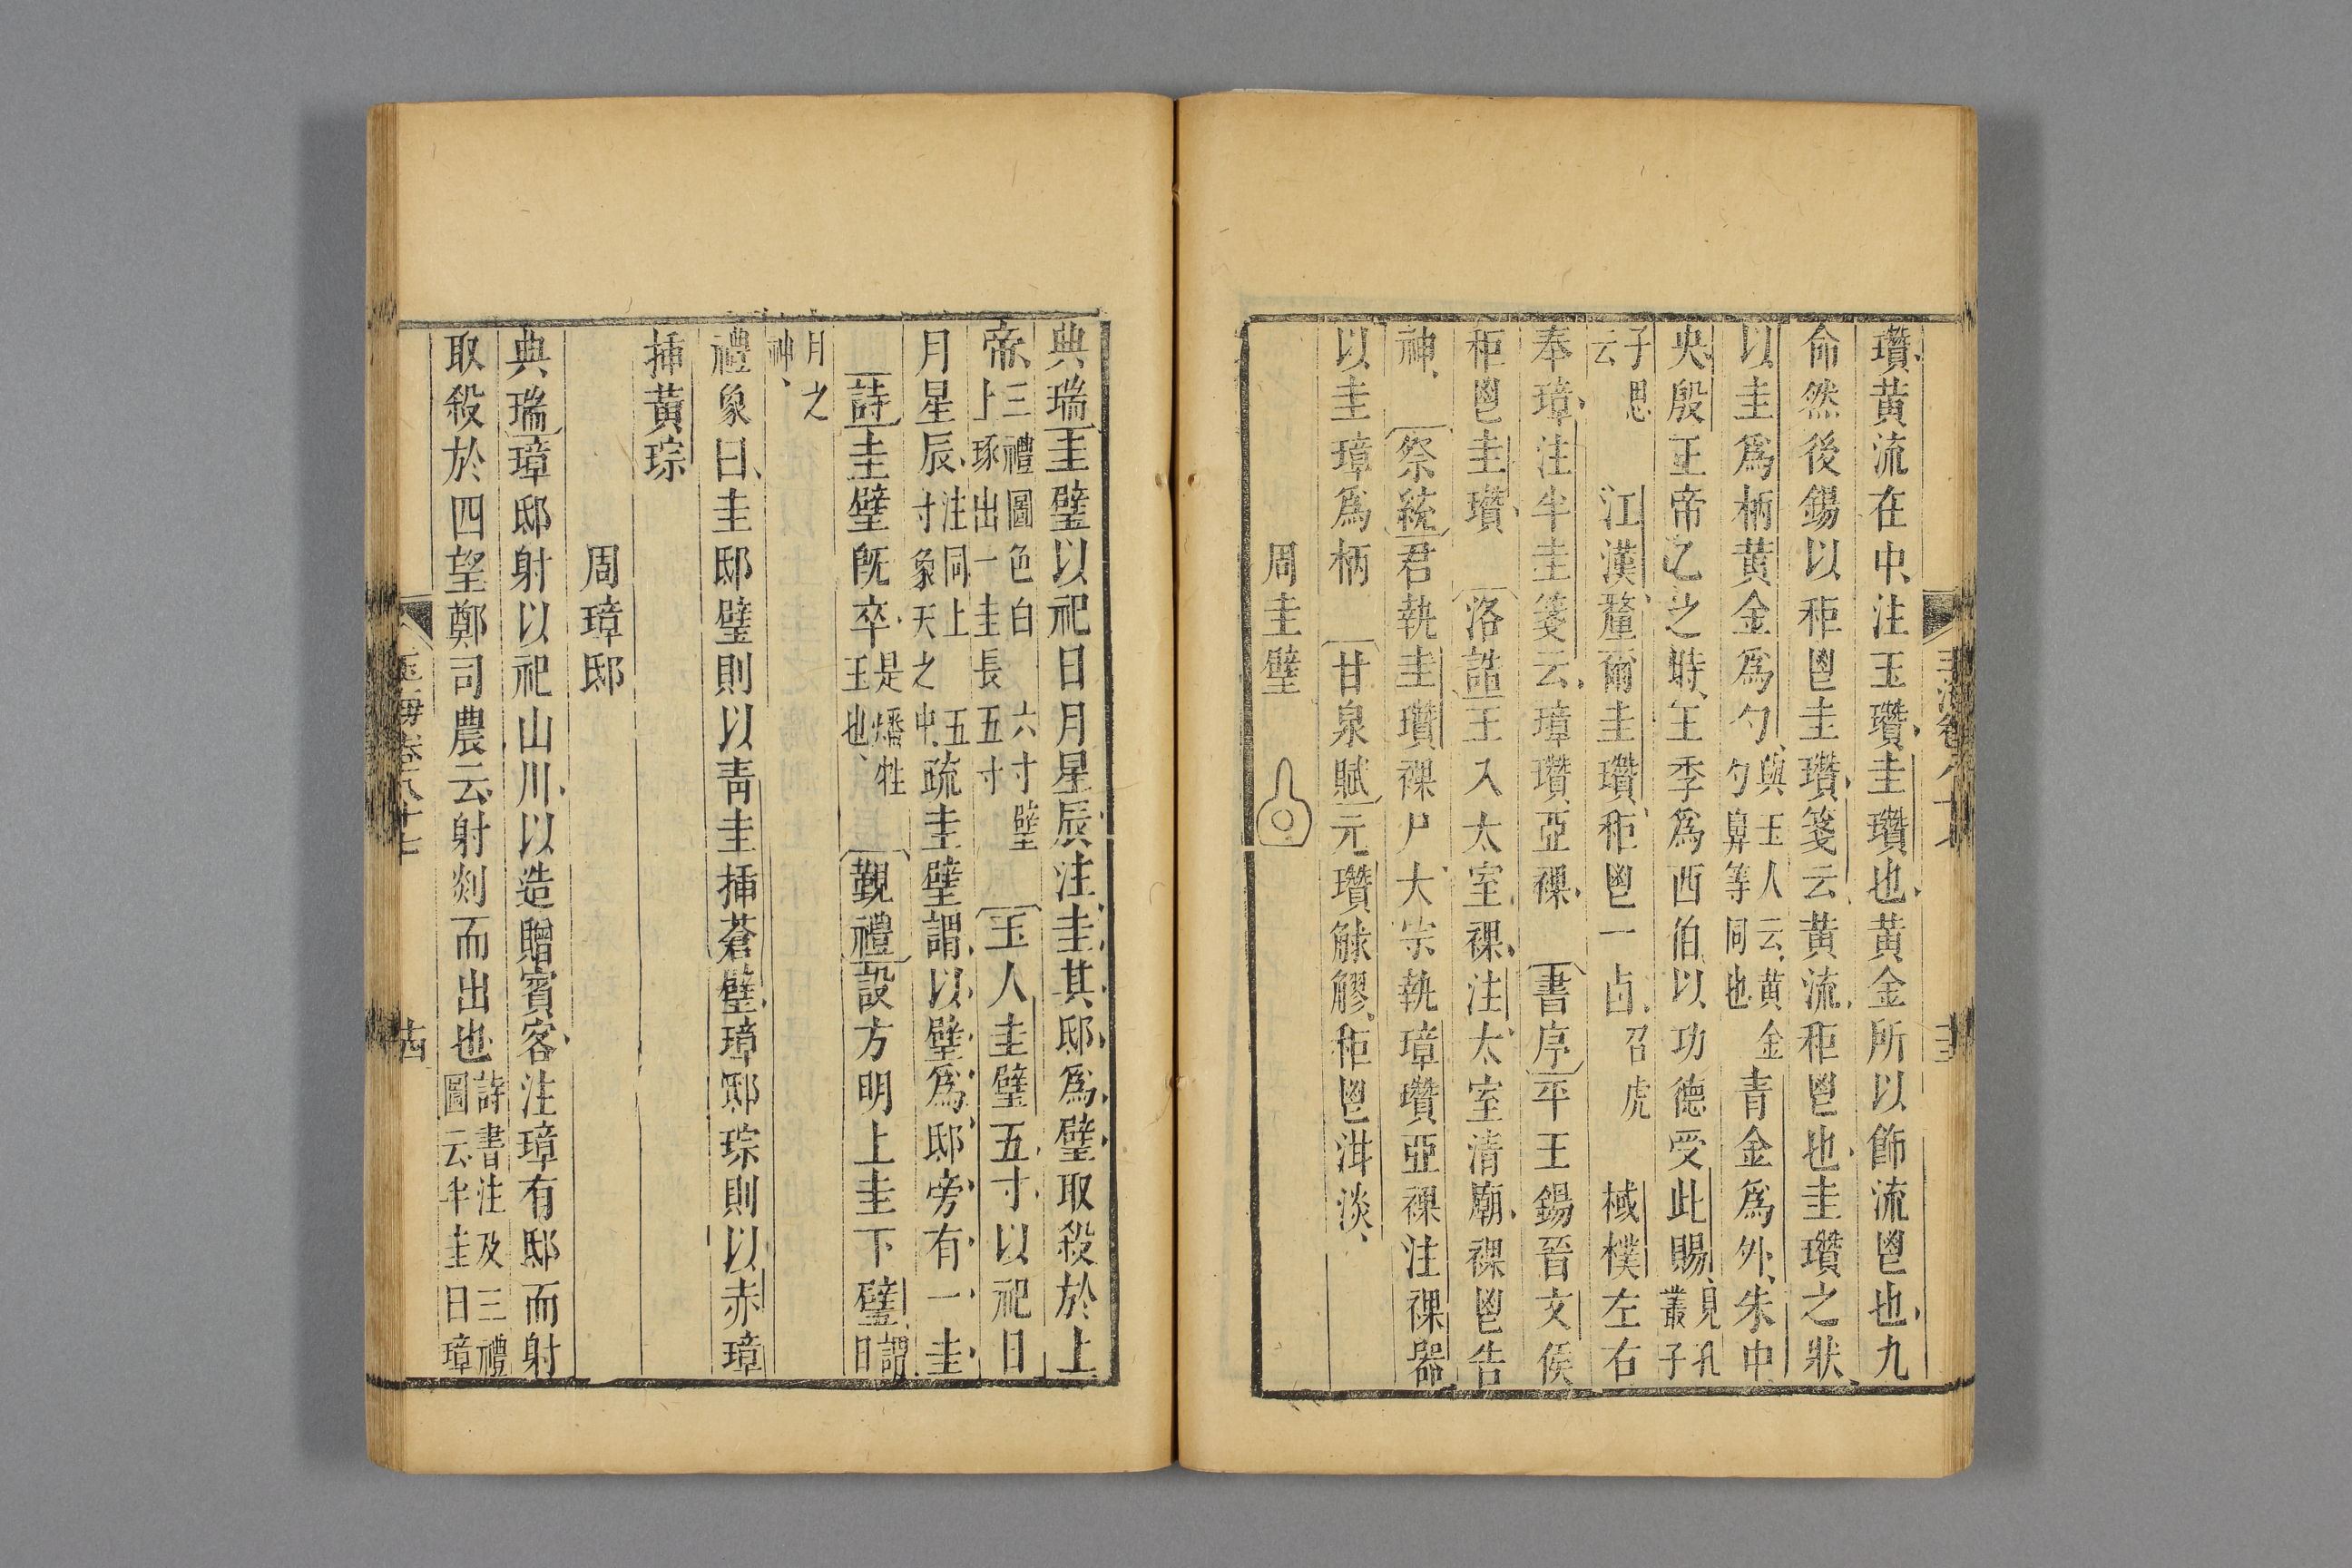 瓚黃流在中注玉瓚圭瓚也黃金所以飾流鬯也九
命然後錫以秬鬯圭瓚箋云黃流秬鬯也圭瓚之狀
以圭爲柄黃金爲勺與玉人云黃金勺鼻等同也青金爲外朱中
央殷王帝乙之時王季爲西伯以功德受此賜見孔叢子
子思云江漢釐爾圭瓚秬鬯一卣召虎棫樸左右
奉璋注半圭箋云璋瓚亞祼書序平王錫晉文侯
秬鬯圭瓚洛誥王入太室祼注太室清廟祼鬯告
神祭統君執圭瓚祼尸大宗執璋瓚亞祼注祼器
以圭璋爲柄甘泉賦元瓚觩觿秬鬯泔淡
周圭璧
典瑞圭璧以祀日月星辰注圭其邸爲璧取殺於上
帝三禮圖色白六寸璧上琢出一圭長五寸玉人圭璧五寸以祀日
月星辰注同上五寸象天之中疏圭璧謂以璧爲邸旁有一圭
詩圭璧旣卒是燔牲玉也覲禮設方明上圭下璧謂日
月之神
禮象曰圭邸璧則以靑圭揷蒼璧璋邸琮則以赤璋
揷黃琮
周璋邸
典瑞璋邸射以祀山川以造贈賓客注璋有邸而射
取殺於四望鄭司農云射剡而出也詩書注及三禮圖云半圭曰璋
玉海卷八十七